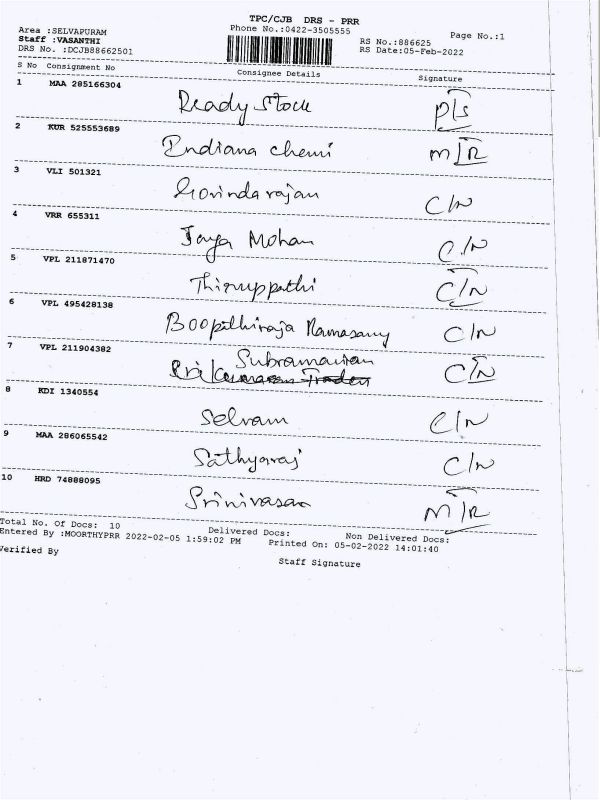 TPC/CJB DRS - PRR
Area :SELVAPURAM Phone No.:0422-3505555 Page No.:1
Staff :VASANTHI RS No.:886625
DRS No. :DCJB88662501 RS Date:05-Feb-2022
S No Consignment No Consignee Details Signature
1 MAA 285166304
Ready Stock P/S
2 KUR 525553689
Indiana chemi M/R
3 VLI 501321
Govindarajan C/N
4 VRR 655311
Jaya Mohan C/N
5 VPL 211871470
Thiruppathi C/N
6 VPL 495428138
Boopathiraja Ramasamy C/N
7 VPL 211904382
Subramanian C/N
8 KDI 1340554
Selvam C/N
9 MAA 286065542
Sathyaraj C/N
10 HRD 74888095
Srinivasan M/R
Total No. Of Docs: 10 Delivered Docs: Non Delivered Docs:
Entered By :MOORTHYPRR 2022-02-05 1:59:02 PM Printed On: 05-02-2022 14:01:40
Verified By
Staff Signature